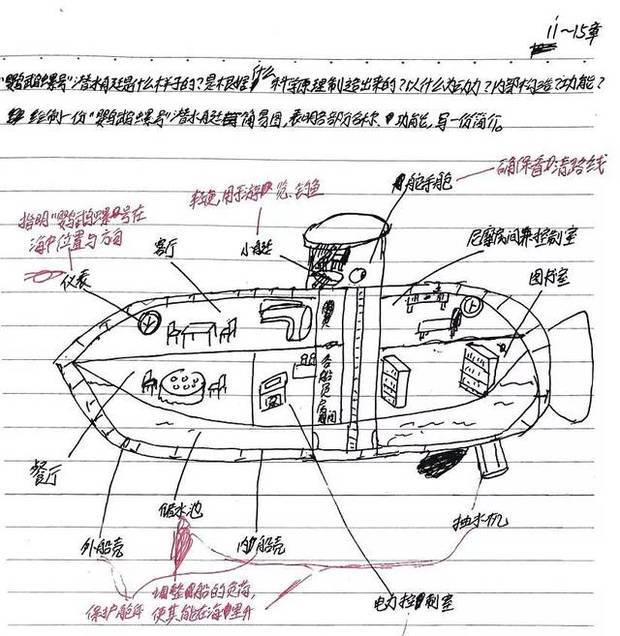 11~15章
"鹦鹉螺号"潜水艇是什么样子的?是根据什么科学原理制造出来的?以什么为动力?内部构造?功能?
绘制一份"鹦鹉螺号"潜水艇简易图,表明各部分名称、功能,写一份简介。
确保看清路线
舵手舱
轻便,用于游览、钓鱼
指明"鹦鹉螺号在
海中位置与方向
客厅
小艇
尼摩房间兼控制室
图书室
仪表
各船员房间
餐厅
储水池
抽水机
外船壳
内船壳
调整船的负荷,
保护船体
使其能在海里升
电力控制室